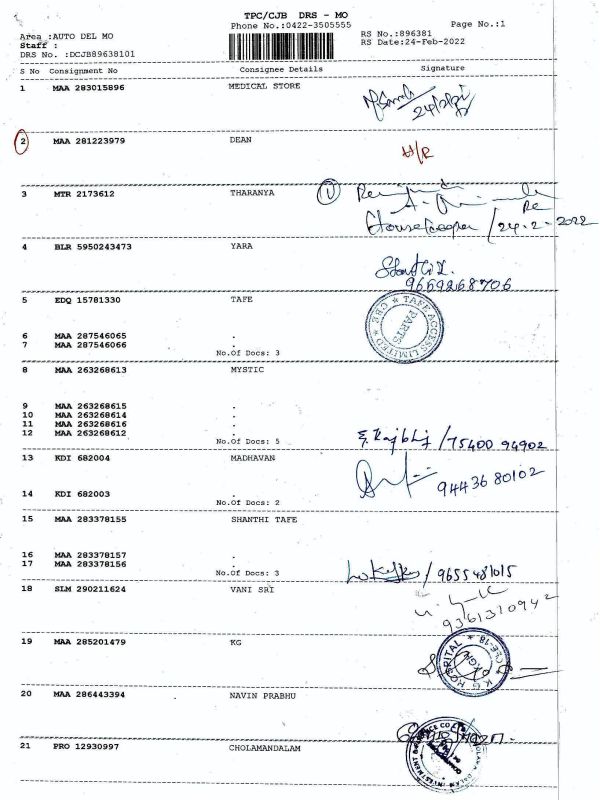 TPC/CJB DRS - MO
Phone No.:0422-3505555 Page No.:1
Area :AUTO DEL MO RS No.:896381
Staff : RS Date:24-Feb-2022
DRS No. :DCJB89638101
S No Consignment No Consignee Details Signature
1 MAA 283015896 MEDICAL STORE
2 MAA 281223979 DEAN
H/R
3 MTR 2173612 THARANYA 1
24-2-2022
4 BLR 5950243473 YARA
9669268706
5 EDQ 15781330 TAFE
TAFF ACCESS LIMITED ★ CBE ★
PARTS
6 MAA 287546065 .
7 MAA 287546066 .
No.Of Docs: 3
8 MAA 263268613 MYSTIC
9 MAA 263268615 .
10 MAA 263268614 .
11 MAA 263268616 .
12 MAA 263268612 .
No.Of Docs: 5 /75400 94902
13 KDI 682004 MADHAVAN
9443680102
14 KDI 682003 .
No.Of Docs: 2
15 MAA 283378155 SHANTHI TAFE
16 MAA 283378157 .
17 MAA 283378156 .
No.Of Docs: 3 /9655481015
18 SLM 290211624 VANI SRI
9361310942
19 MAA 285201479 KG
HOSPITAL ★ CBE-18 ★
20 MAA 286443394 NAVIN PRABHU
21 PRO 12930997 CHOLAMANDALAM